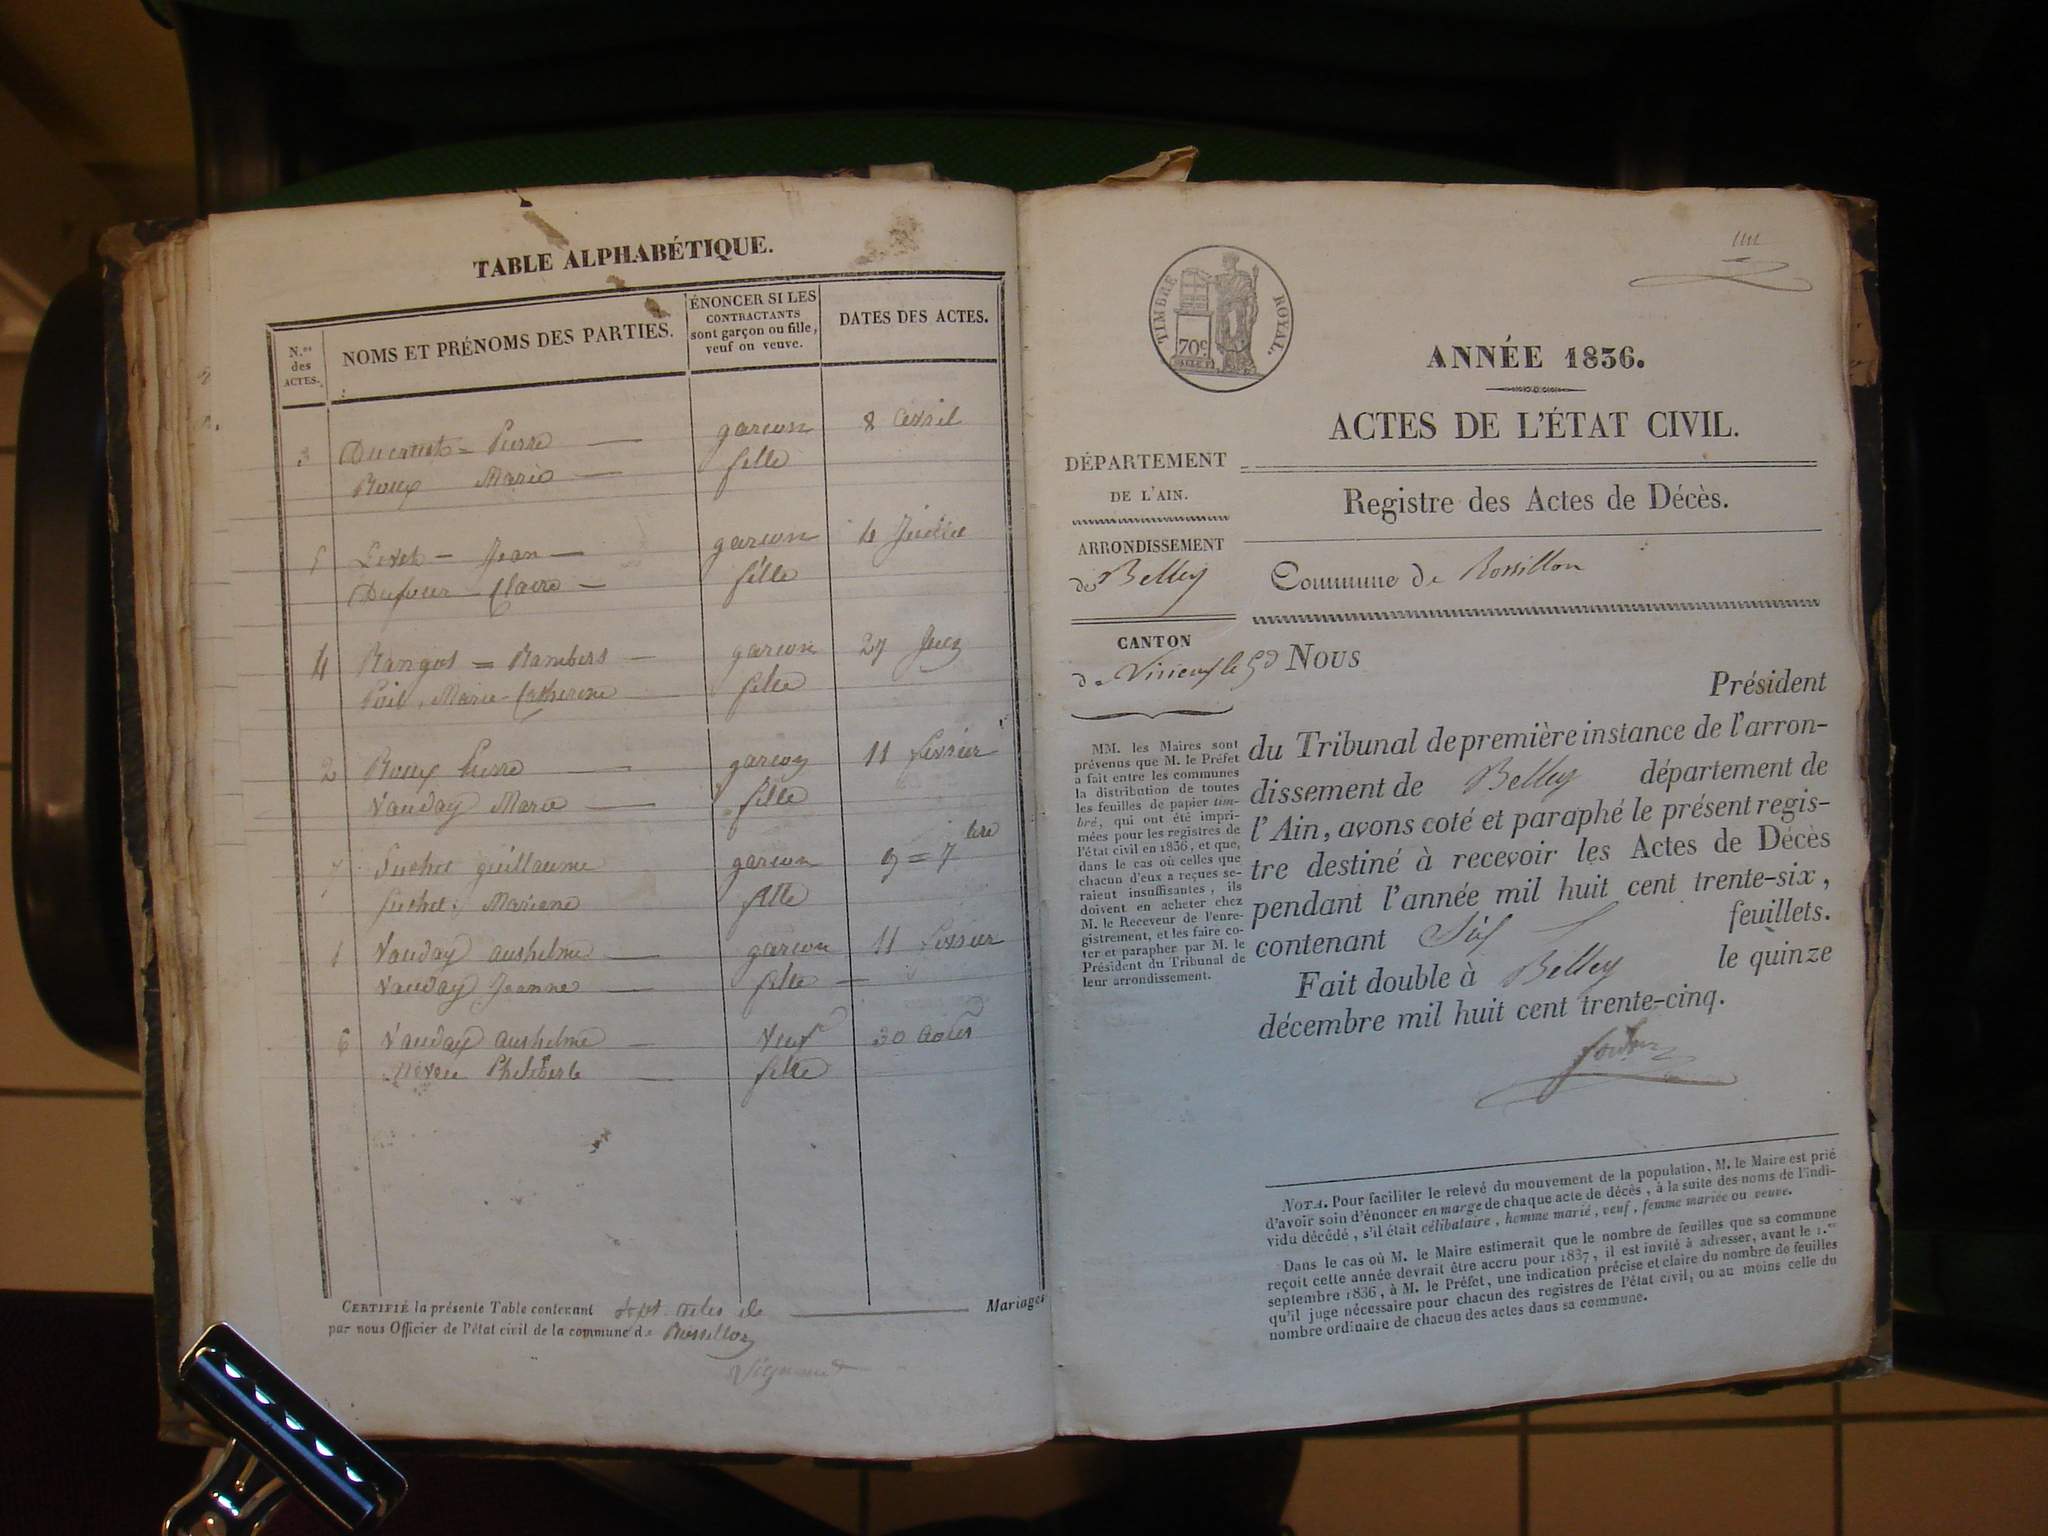 TABLE ALPHABÉTIQUE.
N.os des ACTES.
NOMS ET PRÉNOMS DES PARTIES.
ÉNONCER SI LES
CONTRACTANTS
sont garçon ou fille,
veuf ou veuve.
DATES DES ACTES.
3 Pierre garcon 8 avril
Roux Marie fille
5 Jean garcon
Dufour Claire fille
4 garcon 27
Marie Catherine fille
2 Roux Pierre garcon 11 fevrier
Vauday Marie fille
7 Suchet guillaume garcon 9 = 7bre
Suchet Mariane fille
1 Vauday anthelme garcon 11 fevrier
Vauday Jeanne fille
6 Vauday anthelme Veuf 30 aout
Philiberte fille
CERTIFIÉ la présente Table contenant sept actes de Mariages
par nous Officier de l'état civil de la commune de Rossillon
TIMBRE ROYAL.
70c
ANNÉE 1836.
ACTES DE L'ÉTAT CIVIL.
DÉPARTEMENT
DE L'AIN.
Registre des Actes de Décès.
ARRONDISSEMENT
de Belley
Commune de Rossillon
CANTON
de Virieu le Gd
NOUS
Président
du Tribunal de première instance de l'arron-
dissement de Belley département de
l'Ain, avons coté et paraphé le présent regis-
tre destiné à recevoir les Actes de Décès
pendant l'année mil huit cent trente-six,
contenant Six feuillets.
Fait double à Belley le quinze
décembre mil huit cent trente-cinq.
MM. les Maires sont
prévenus que M. le Préfet
a fait entre les communes
la distribution de toutes
les feuilles de papier tim-
bré, qui ont été impri-
mées pour les registres de
l'état civil en 1836, et que,
dans le cas où celles que
chacun d'eux a reçues se-
raient insuffisantes, ils
doivent en acheter chez
M. le Receveur de l'enre-
gistrement, et les faire co-
ter et parapher par M. le
Président du Tribunal de
leur arrondissement.
NOTA. Pour faciliter le relevé du mouvement de la population, M. le Maire est prié
d'avoir soin d'énoncer en marge de chaque acte de décès, à la suite des noms de l'indi-
vidu décédé, s'il était célibataire, homme marié, veuf, femme mariée ou veuve.
Dans le cas où M. le Maire estimerait que le nombre de feuilles que sa commune
reçoit cette année devrait être accru pour 1837, il est invité à adresser, avant le 1.er
septembre 1836, à M. le Préfet, une indication précise et claire du nombre de feuilles
qu'il juge nécessaire pour chacun des registres de l'état civil, ou au moins celle du
nombre ordinaire de chacun des actes dans sa commune.